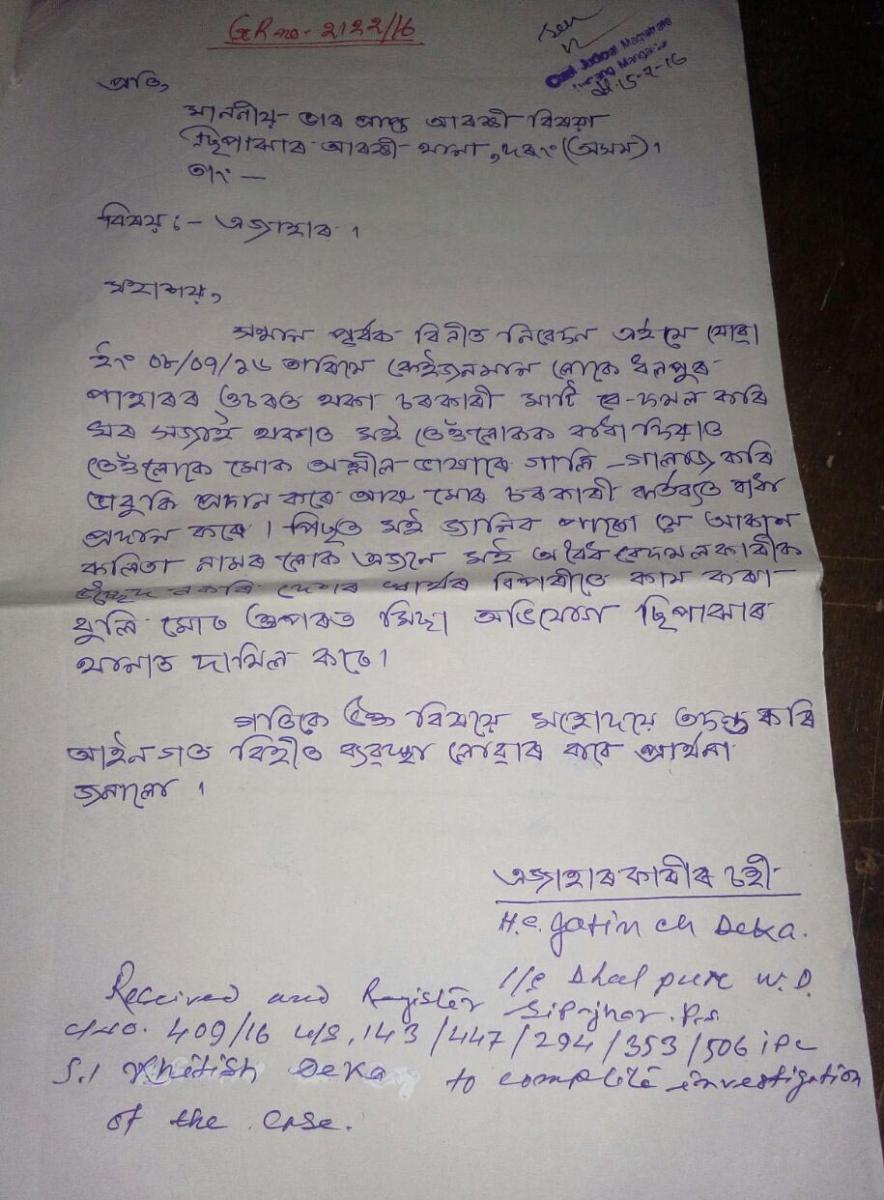 GR no - 2122/16
Seen
Chief Judicial Magistrate
Darrang Mangaldai
15-7-16
প্ৰতি,
মাননীয় ভাৰ প্ৰাপ্ত আৰক্ষী বিষয়া
ছিপাঝাৰ আৰক্ষী থানা, দৰং (অসম)।
তাং —
বিষয় :- এজাহাৰ ।
মহাশয়,
সন্মান পূৰ্বক বিনীত নিবেদন এই যে যোৱা
ইং ০৮/০৭/১৬ তাৰিখে কেইজনমান লোকে ধলপুৰ
পাহাৰৰ ওচৰত থকা চৰকাৰী মাটি বে-দখল কৰি
ঘৰ সজাই থকাত মই তেওঁলোকক বাধা দিয়াত
তেওঁলোকে মোক অশ্লীল ভাষাৰে গালি-গালাজ কৰি
ভাবুকি প্ৰদান কৰে আৰু মোৰ চৰকাৰী কৰ্তব্যত বাধা
প্ৰদান কৰে । পিছত মই জানিব পাৰো যে আকান
কলিতা নামৰ লোক এজনে মই অবৈধ বেদখলকাৰীক
উচ্ছেদ নকৰি দেশৰ স্বাৰ্থৰ বিপৰীতে কাম কৰা
বুলি মোৰ ওপৰত মিছা অভিযোগ ছিপাঝাৰ
থানাত দাখিল কৰে।
গতিকে উক্ত বিষয়ে মহোদয়ে তদন্ত কৰি
আইনগত বিহীত ব্যৱস্থা লোৱাৰ বাবে প্ৰাৰ্থনা
জনালো ।
এজাহাৰকাৰীৰ চহী
H.C. Jatin Ch Deka.
I/C Dhalpure W.D.
Received and Register Sipajhar P.S.
C/No. 409/16 u/s, 143/447/294/353/506 ipc
S.I Khitish Deka to complete investigation
of the case.